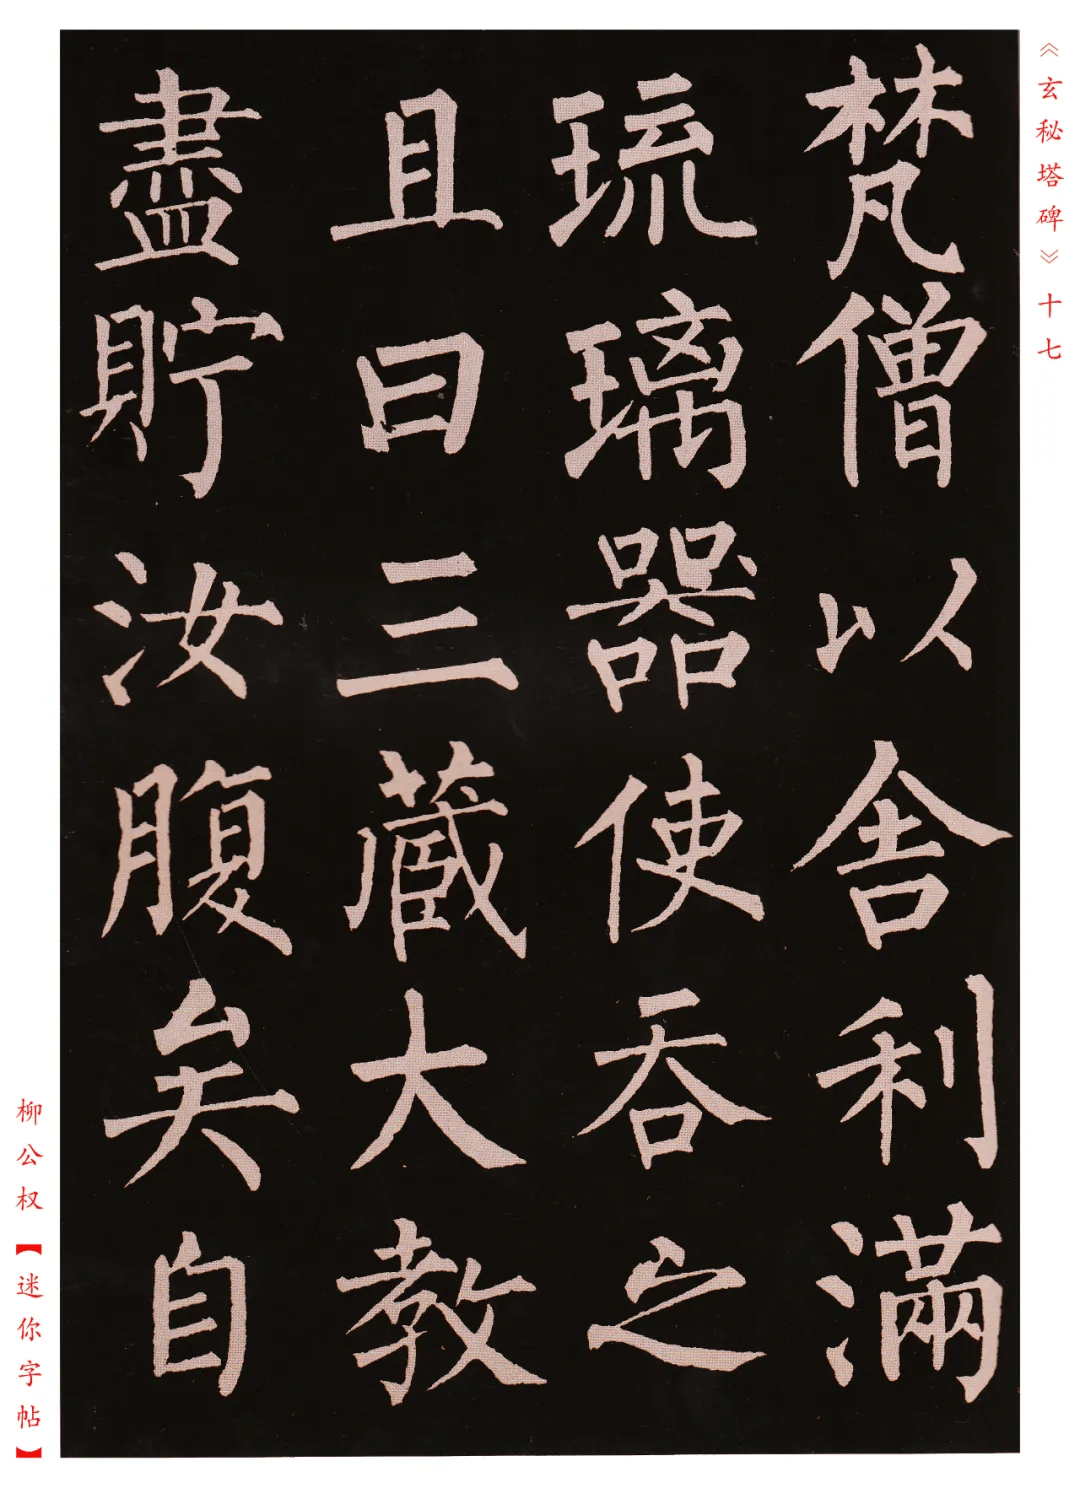 《玄秘塔碑》十七
梵僧以舍利滿
琉璃器使吞之
且曰三藏大教
盡貯汝腹矣自
柳公权【迷你字帖】